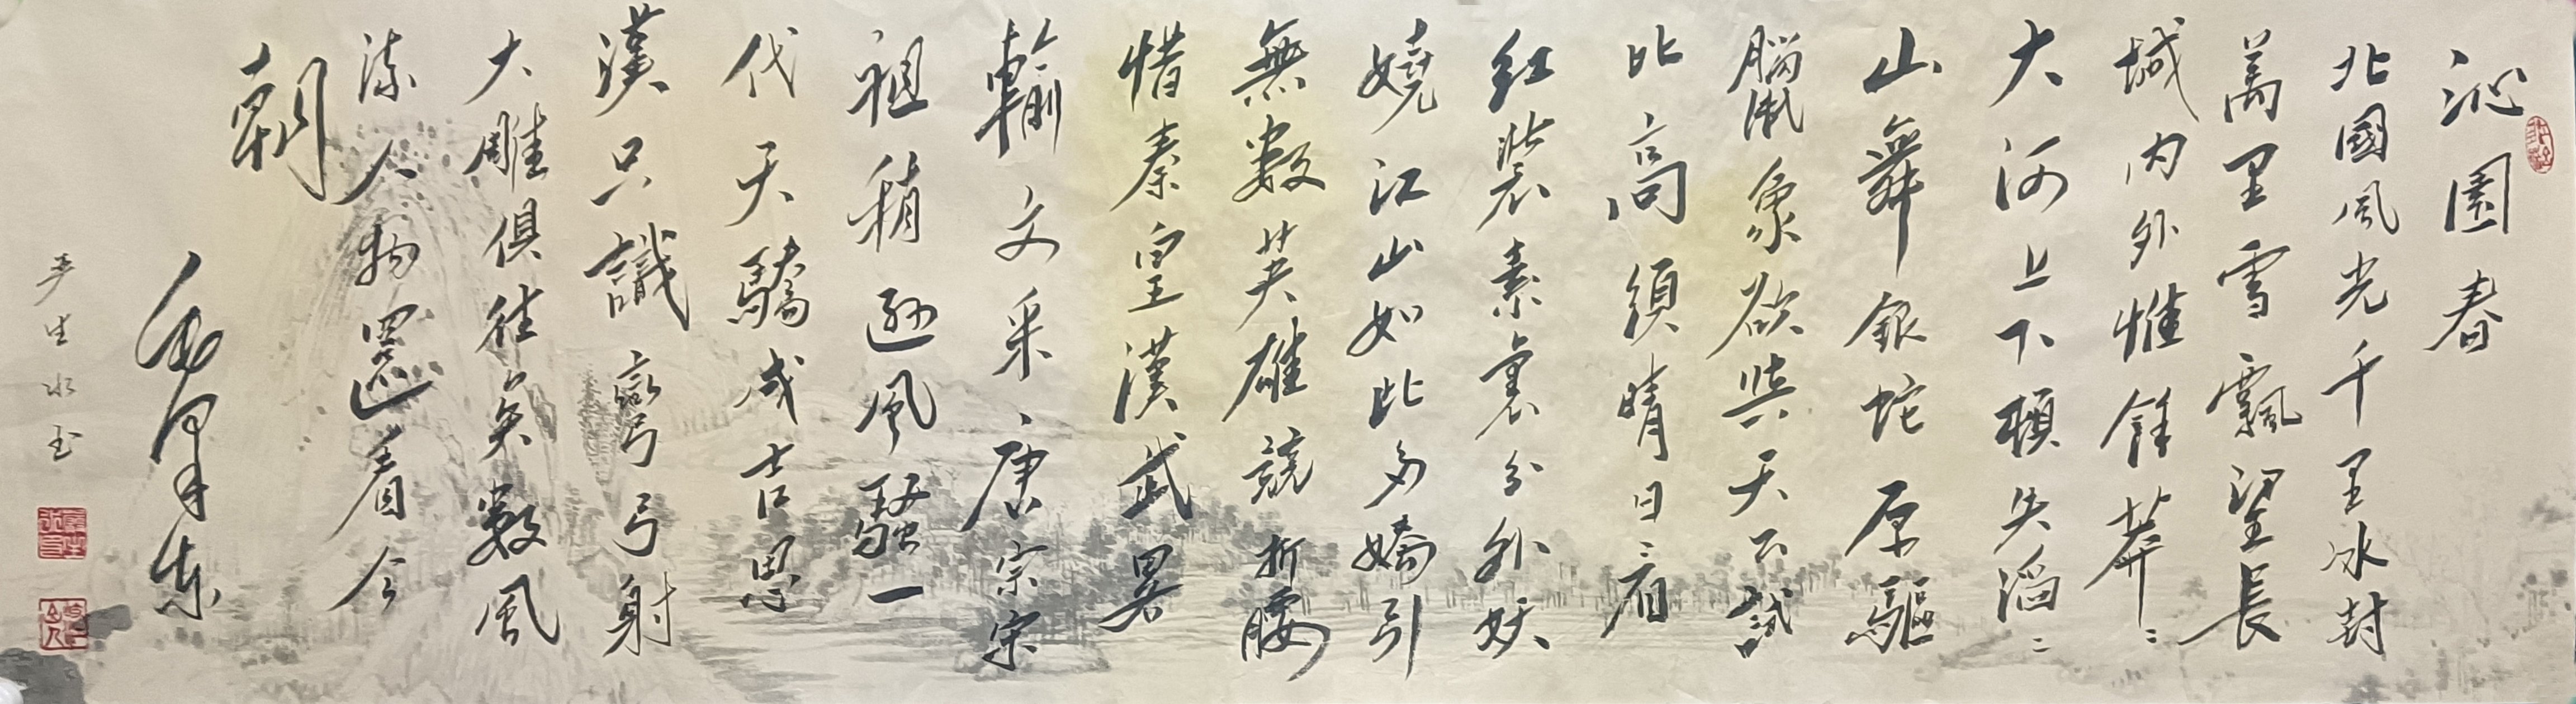 沁園春
北國風光千里冰封
萬里雪飄望長
城内外惟餘莽〻
大河上下頓失滔〻
山舞銀蛇原驅
臘象欲與天公試
比高須晴日看
紅裝素裹分外妖
嬈江山如此多嬌引
無數英雄競折腰
惜秦皇漢武畧
輸文采唐宗宋
祖稍遜風騷一
代天驕成吉思
漢只識彎弓射
大雕俱往矣數風
流人物還看今
朝
毛澤東
生水